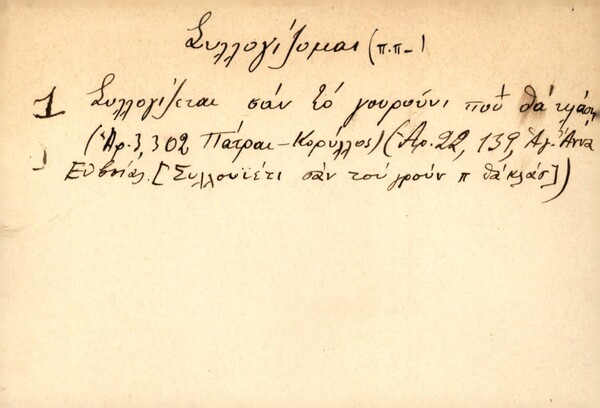 Συλλογίζομαι (π.π-)
1 Συλλογίζεται σάν τό γουρούνι πού θά κλάσῃ
(Ἀρ. 3, 302 Πάτραι - Κορύλλος) (Ἀρ. 22, 139, Ἁγ. Ἄννα
Εὐβοίας. [Συλλουϊέτι σάν τού γρούν π θά κλάσ])